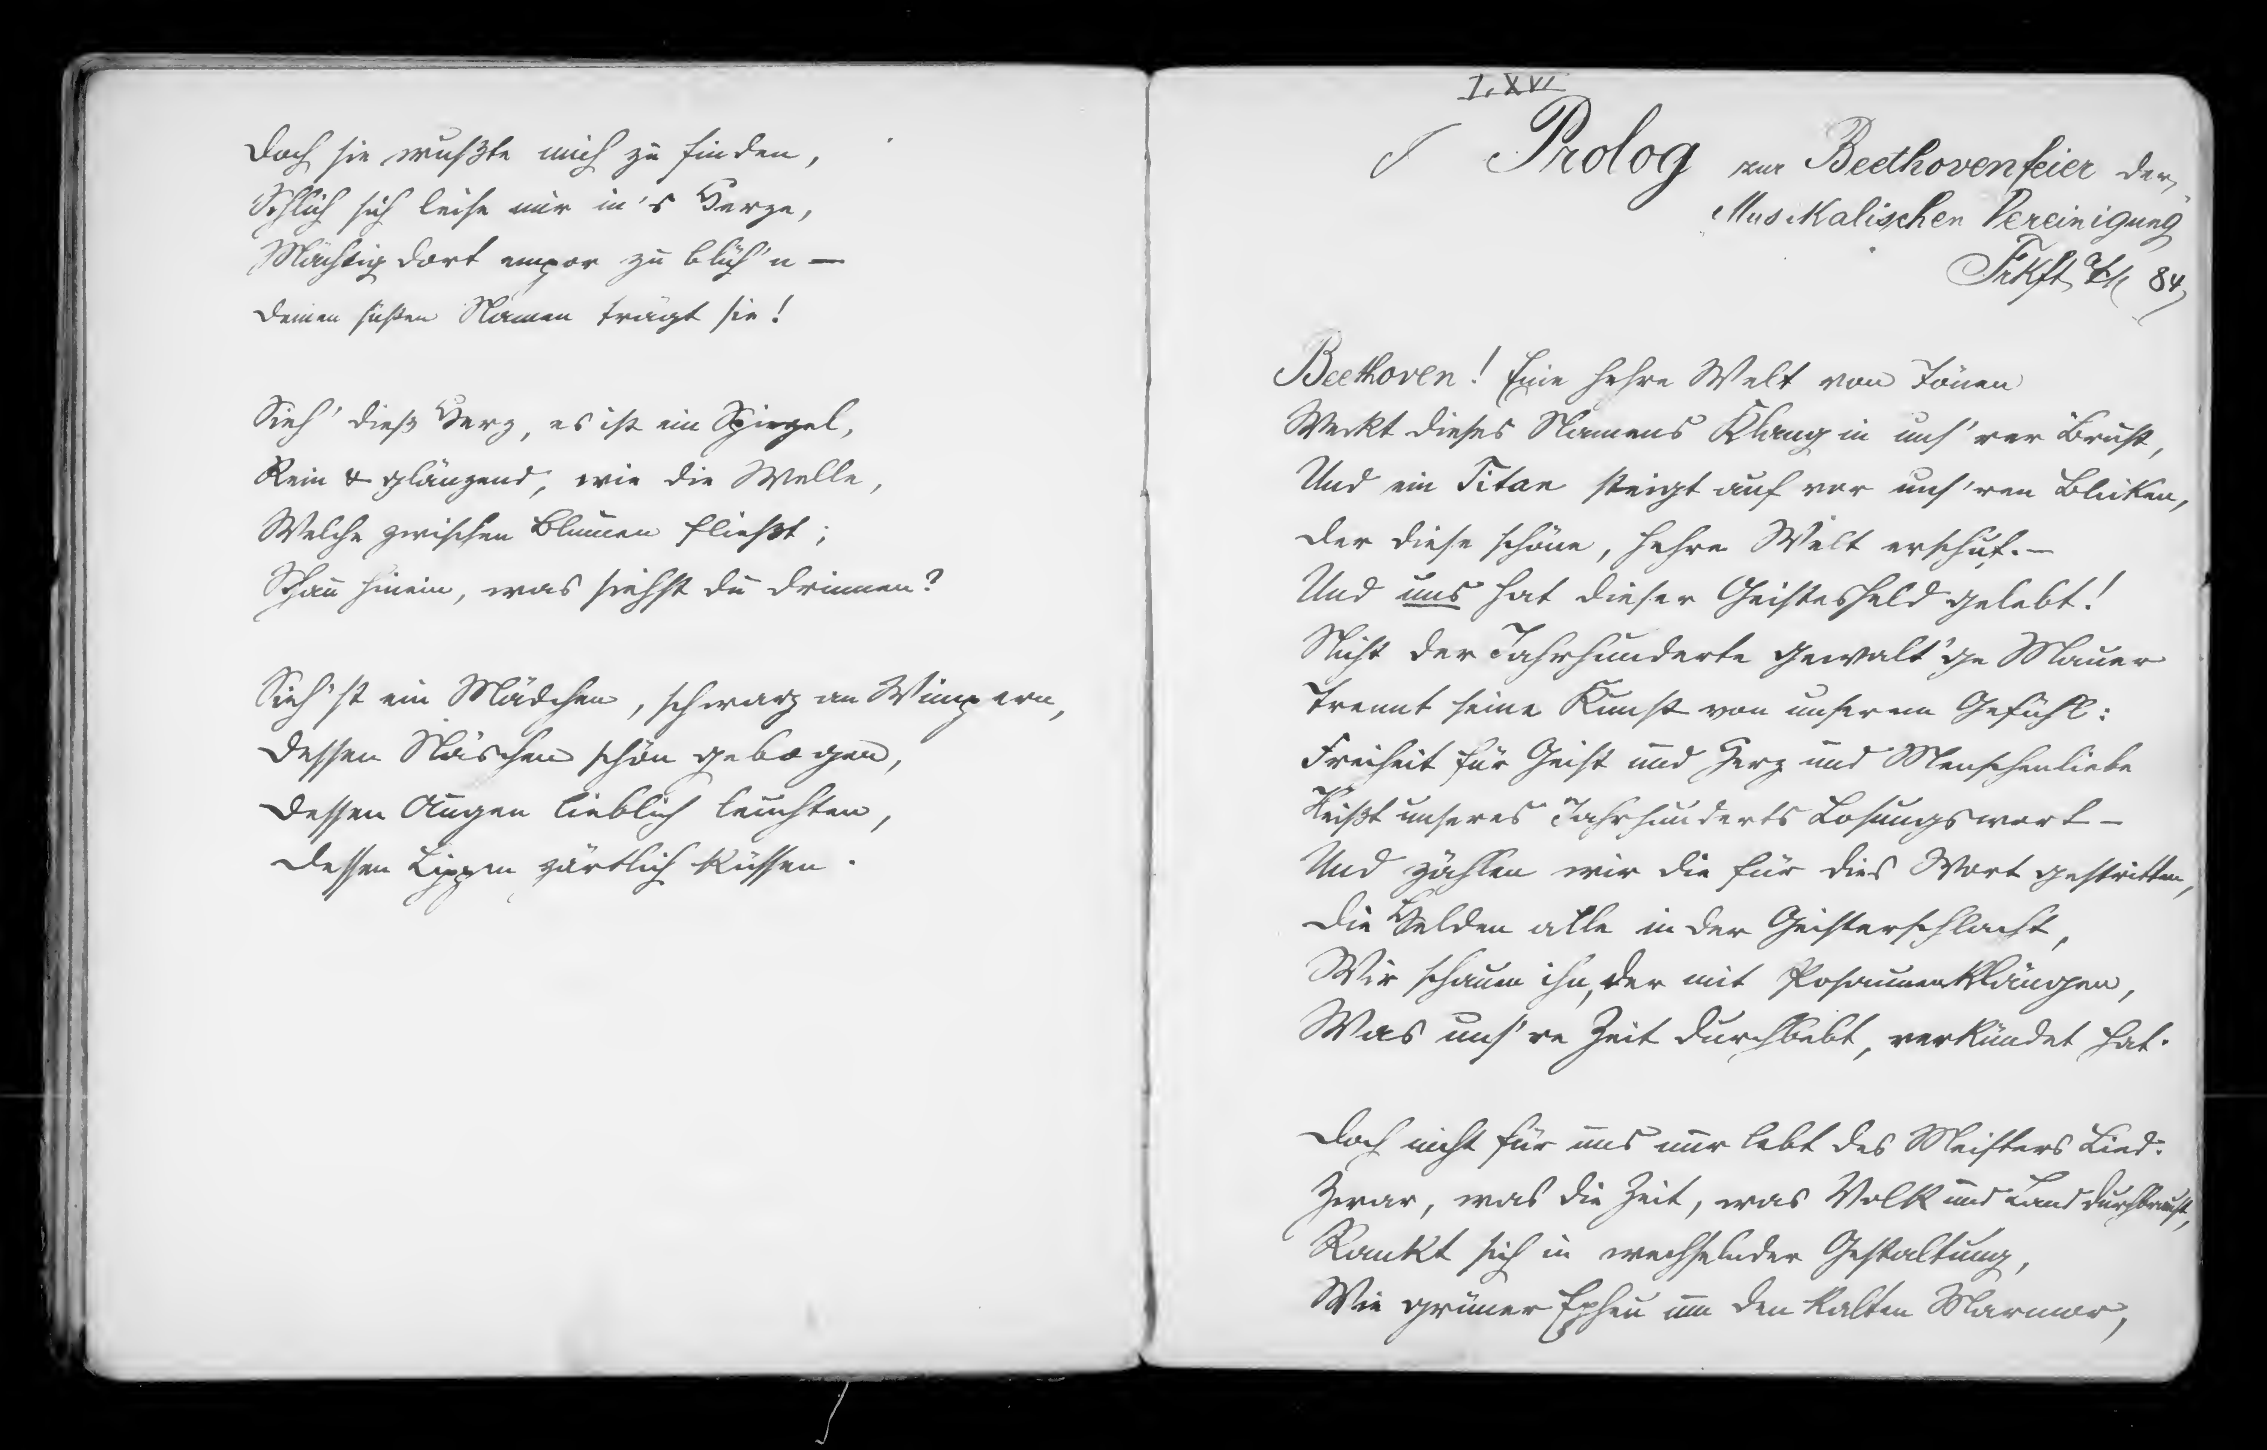 Doch sie wußte mich zu finden,
Schlich sich leise mir in's Herze,
Mächtig dort empor zu blüh'n —
Deinen süßen Namen trägt sie!
Sieh' dieß Herz, es ist ein Spiegel,
Rein & glänzend, wie die Welle,
Welche zwischen Blumen fließt;
Schau hinein, was siehst du drinnen?
Sieh' 'st ein Mädchen, schwarz an Wimpern,
Dessen Näschen schön gebogen,
Dessen Augen lieblich leuchten,
Dessen Lippen zärtlich küssen.
I. XVI
Prolog zur Beethovenfeier der
Musikalischen Vereinigung
Frkft a/M 84
Beethoven! Eine hehre Welt von Tönen
Weckt dieses Namens Klang in uns'rer Brust,
Und ein Titan steigt auf vor uns'ren Blicken,
Der diese schöne, hehre Welt erschuf. —
Und uns hat dieser Geistesheld gelebt!
Nicht der Jahrhunderte gewalt'ge Mauer
Trennt seine Kunst von unserem Gefühl:
Freiheit für Geist und Herz und Menschenliebe
Heißt unseres Jahrhunderts Losungswort —
Und zählen wir die für dies Wort gestritten,
Die Helden alle in der Geisterschlacht,
Wir schauen ihn, der mit Posaunenklängen,
Was uns're Zeit durchbebt, verkündet hat.
Doch nicht für uns nur lebt des Meisters Lied:
Zwar, was die Zeit, was Volk und Land durchbraust,
Rankt sich in wechselnder Gestaltung,
Wie grüner Epheu um den kalten Marmor,